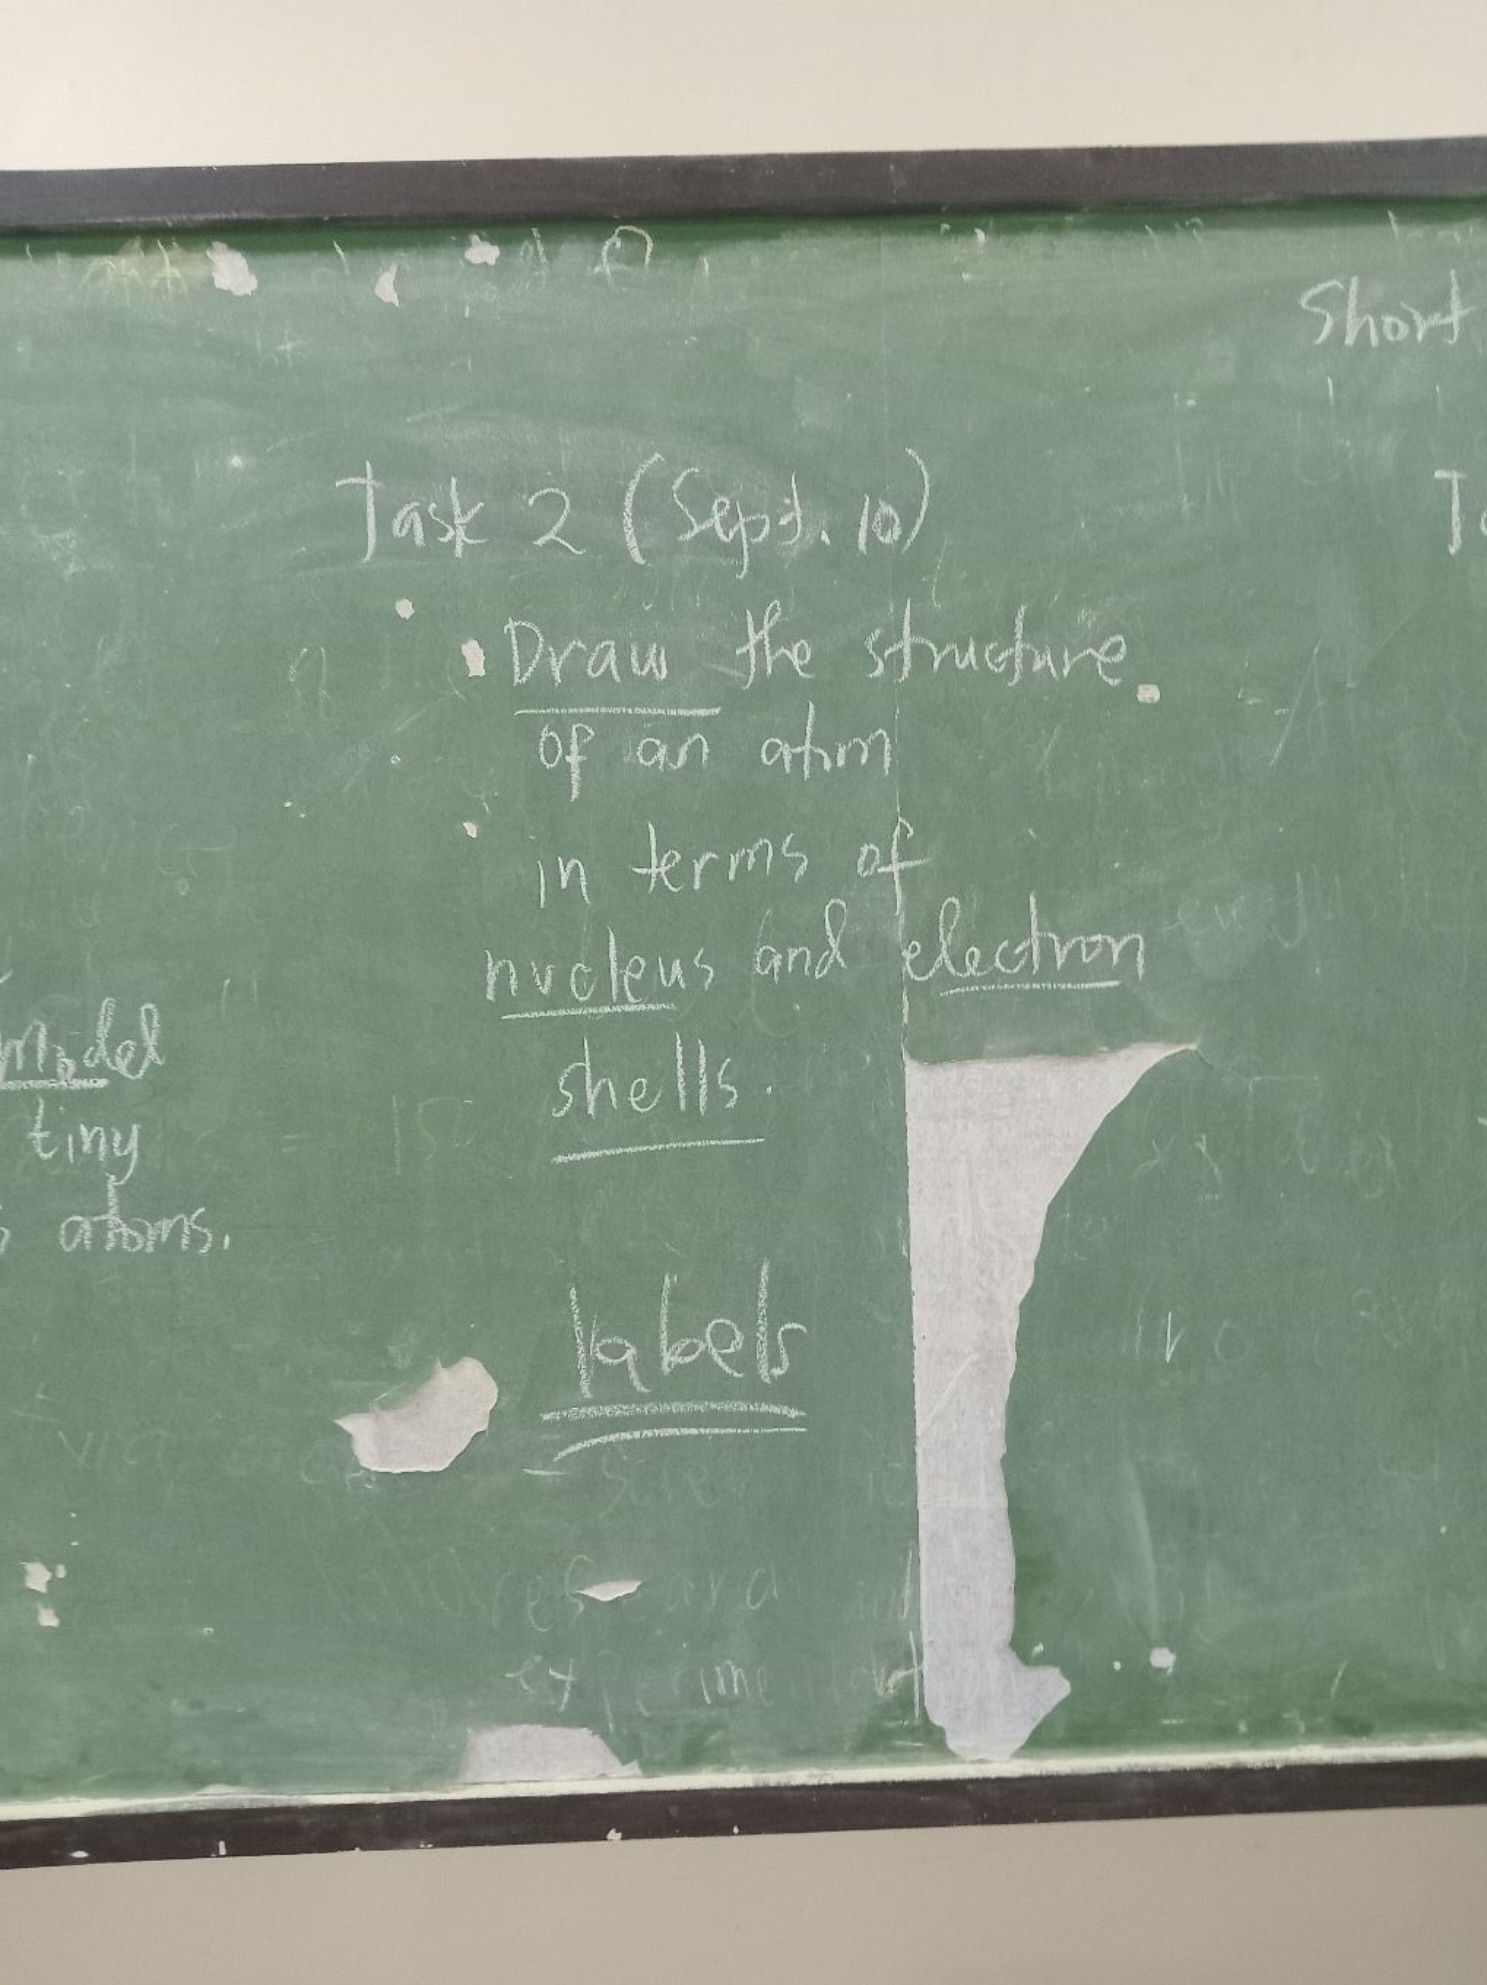 Short
Task 2 (Sept. 10)
Draw the structure
of an atom
in terms of
nucleus and electron
shells.
labels
model
tiny
atoms.